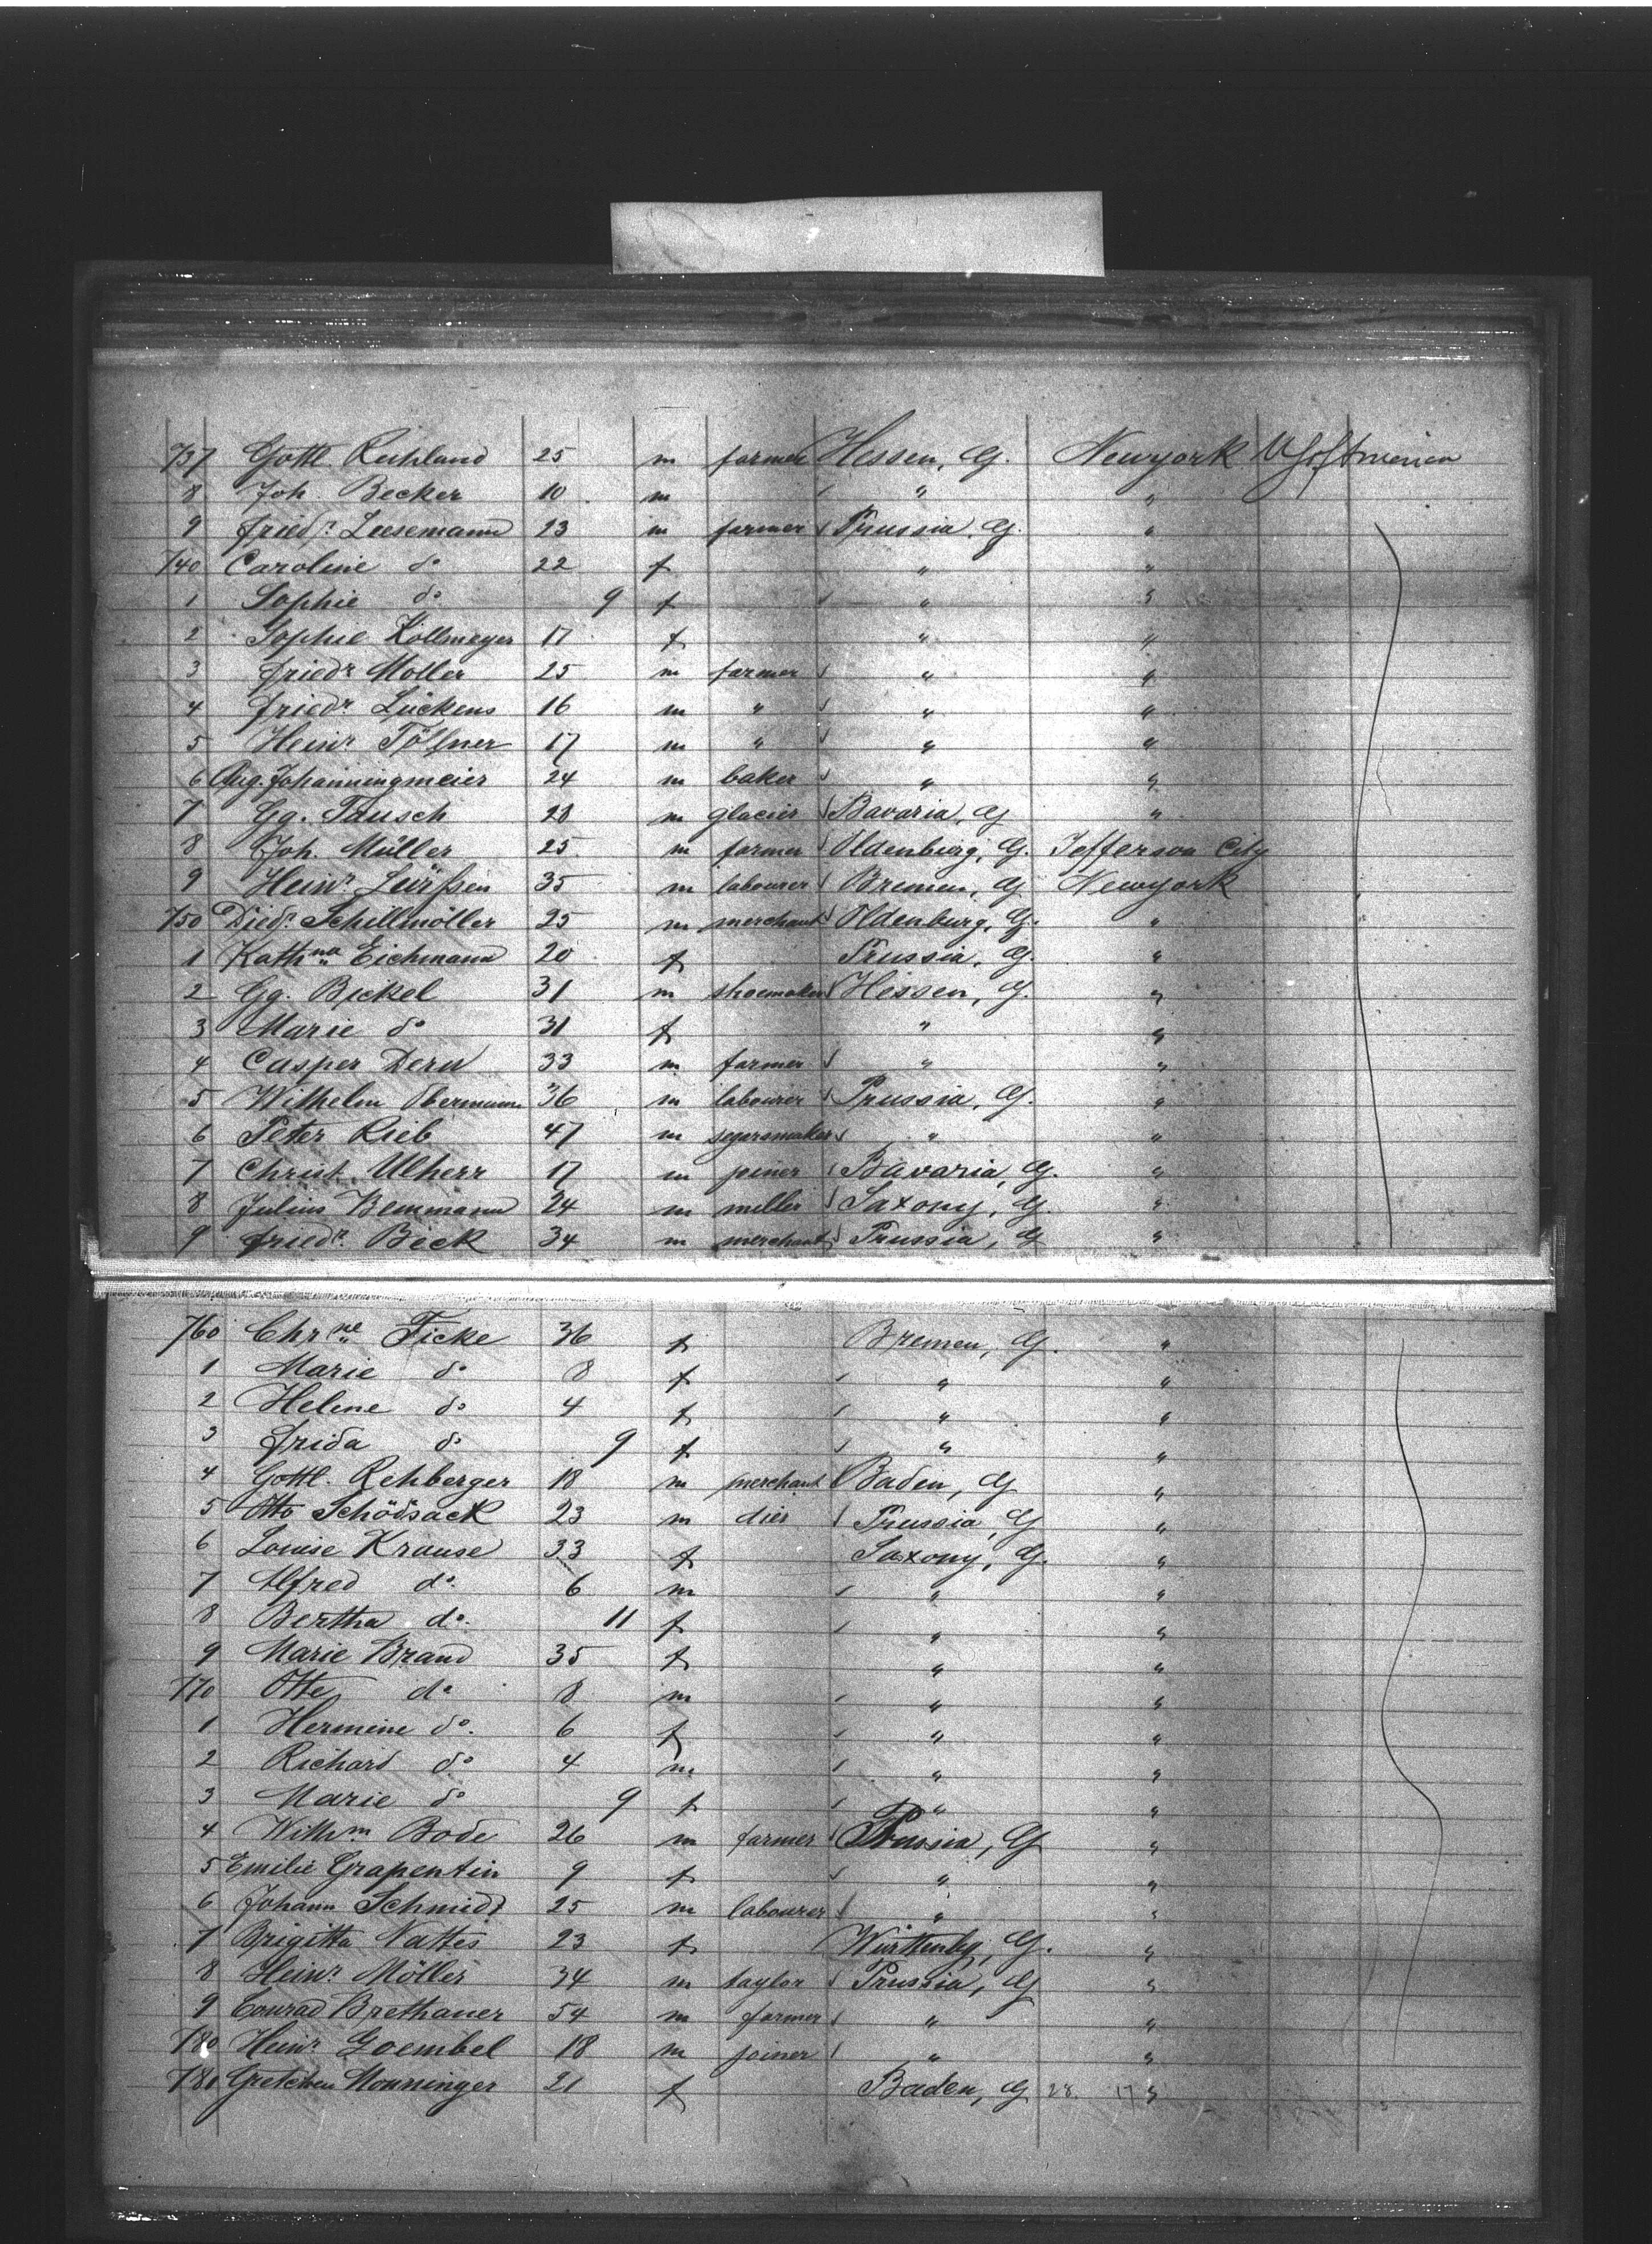 737 Gottl. Ruhland 25 m farmer Hessen, G. Newyork U S of America
8 Joh. Becker 10 m " "
9 Friedr. Leesemann 23 m farmer Prussia, G. "
740 Caroline do 22 f " "
1 Sophie do 9 f " "
2 Sophie Köllmeyer 17 f " "
3 Friedr Moller 25 m farmer " "
4 Friedr. Lückens 16 m " " "
5 Heinr Töllner 17 m " " "
6 Aug. Johanningmeier 24 m baker " "
7 Gg. Tausch 28 m glacier Bavaria, G "
8 Joh. Müller 25 m farmer Oldenburg, G. Jefferson City
9 Heinr Lürssen 35 m labourer Bremen, G Newyork
750 Diedr. Schillmöller 25 m merchant Oldenburg, G. "
1 Kathna Eichmann 20 f Prussia, G. "
2 Gg. Bickel 31 m shoemaker Hessen, G. "
3 Marie do 31 f " "
4 Casper Dern 33 m farmer " "
5 Wilhelm Obermann 36 m labourer Prussia, G. "
6 Peter Rieb 47 m segarsmaker " "
7 Christ. Ulherr 17 m joiner Bavaria, G. "
8 Julius Bemmann 24 m miller Saxony, G. "
9 Friedr. Beck 34 m merchant Prussia, G "
760 Chrne Ficke 36 f Bremen, G. "
1 Marie do 8 f " "
2 Helene do 4 f " "
3 Frida do 9 f " "
4 Gottl. Rehberger 18 m merchant Baden, G "
5 Otto Schödsack 23 m dier Prussia, G "
6 Louise Krause 33 f Saxony, G. "
7 Alfred do. 6 m " "
8 Bertha do. 11 f " "
9 Marie Brand 35 f " "
770 Otto do 8 m " "
1 Hermine do. 6 f " "
2 Richard do 4 m " "
3 Marie do 9 f " "
4 Wilhm Bode 26 m farmer Prussia, G "
5 Emilie Grapentin 9 f " "
6 Johann Schmidt 25 m labourer " "
7 Brigitta Nattes 23 f Würtenbg, G. "
8 Heinr Möller 34 m taylor Prussia, G "
9 Conrad Brethauer 54 m farmer " "
780 Heinr Goembel 18 m joiner " "
781 Gretchen Monninger 21 f Baden, G 28. 17 "